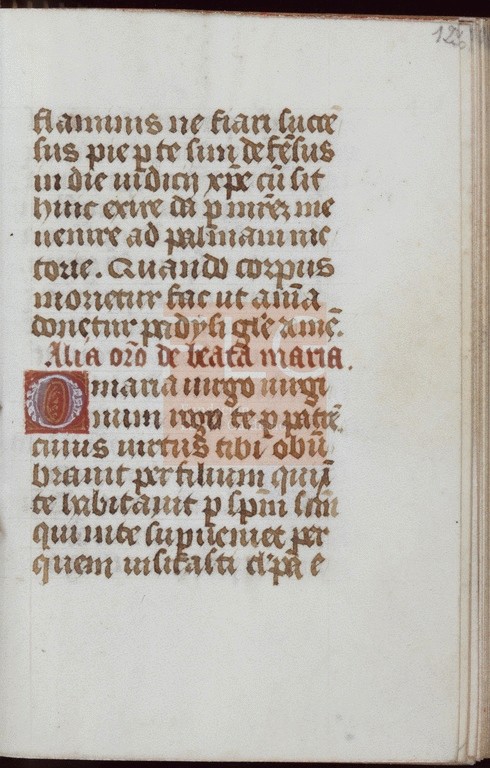 12
flammis ne fiam succē
sus pie p te sim defēsus
in die iudicij xp̄e cū sit
hinc exire da p mr̄ez me
uenire ad palmam uic
torie. Quando corpus
morietur fac ut aīa
donetur padysi gl̄e amē.
Alia or̄o de beata maria.
O maria uirgo uirgi
num rogo te p patrē
cuius uirtus tibi obū
brauit per filium qui ī
te habitauit p sp̄m sc̄m
qui in te supueniet per
quem uisitasti